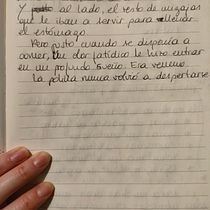 Y al lado, el resto de migajas
que le iban a servir para rellenar
el estómago.
Pero justo cuando se disponía a
comer, un olor fatídico le hizo entrar
en un profundo sueño. Era veneno.
La polilla nunca volvió a despertarse